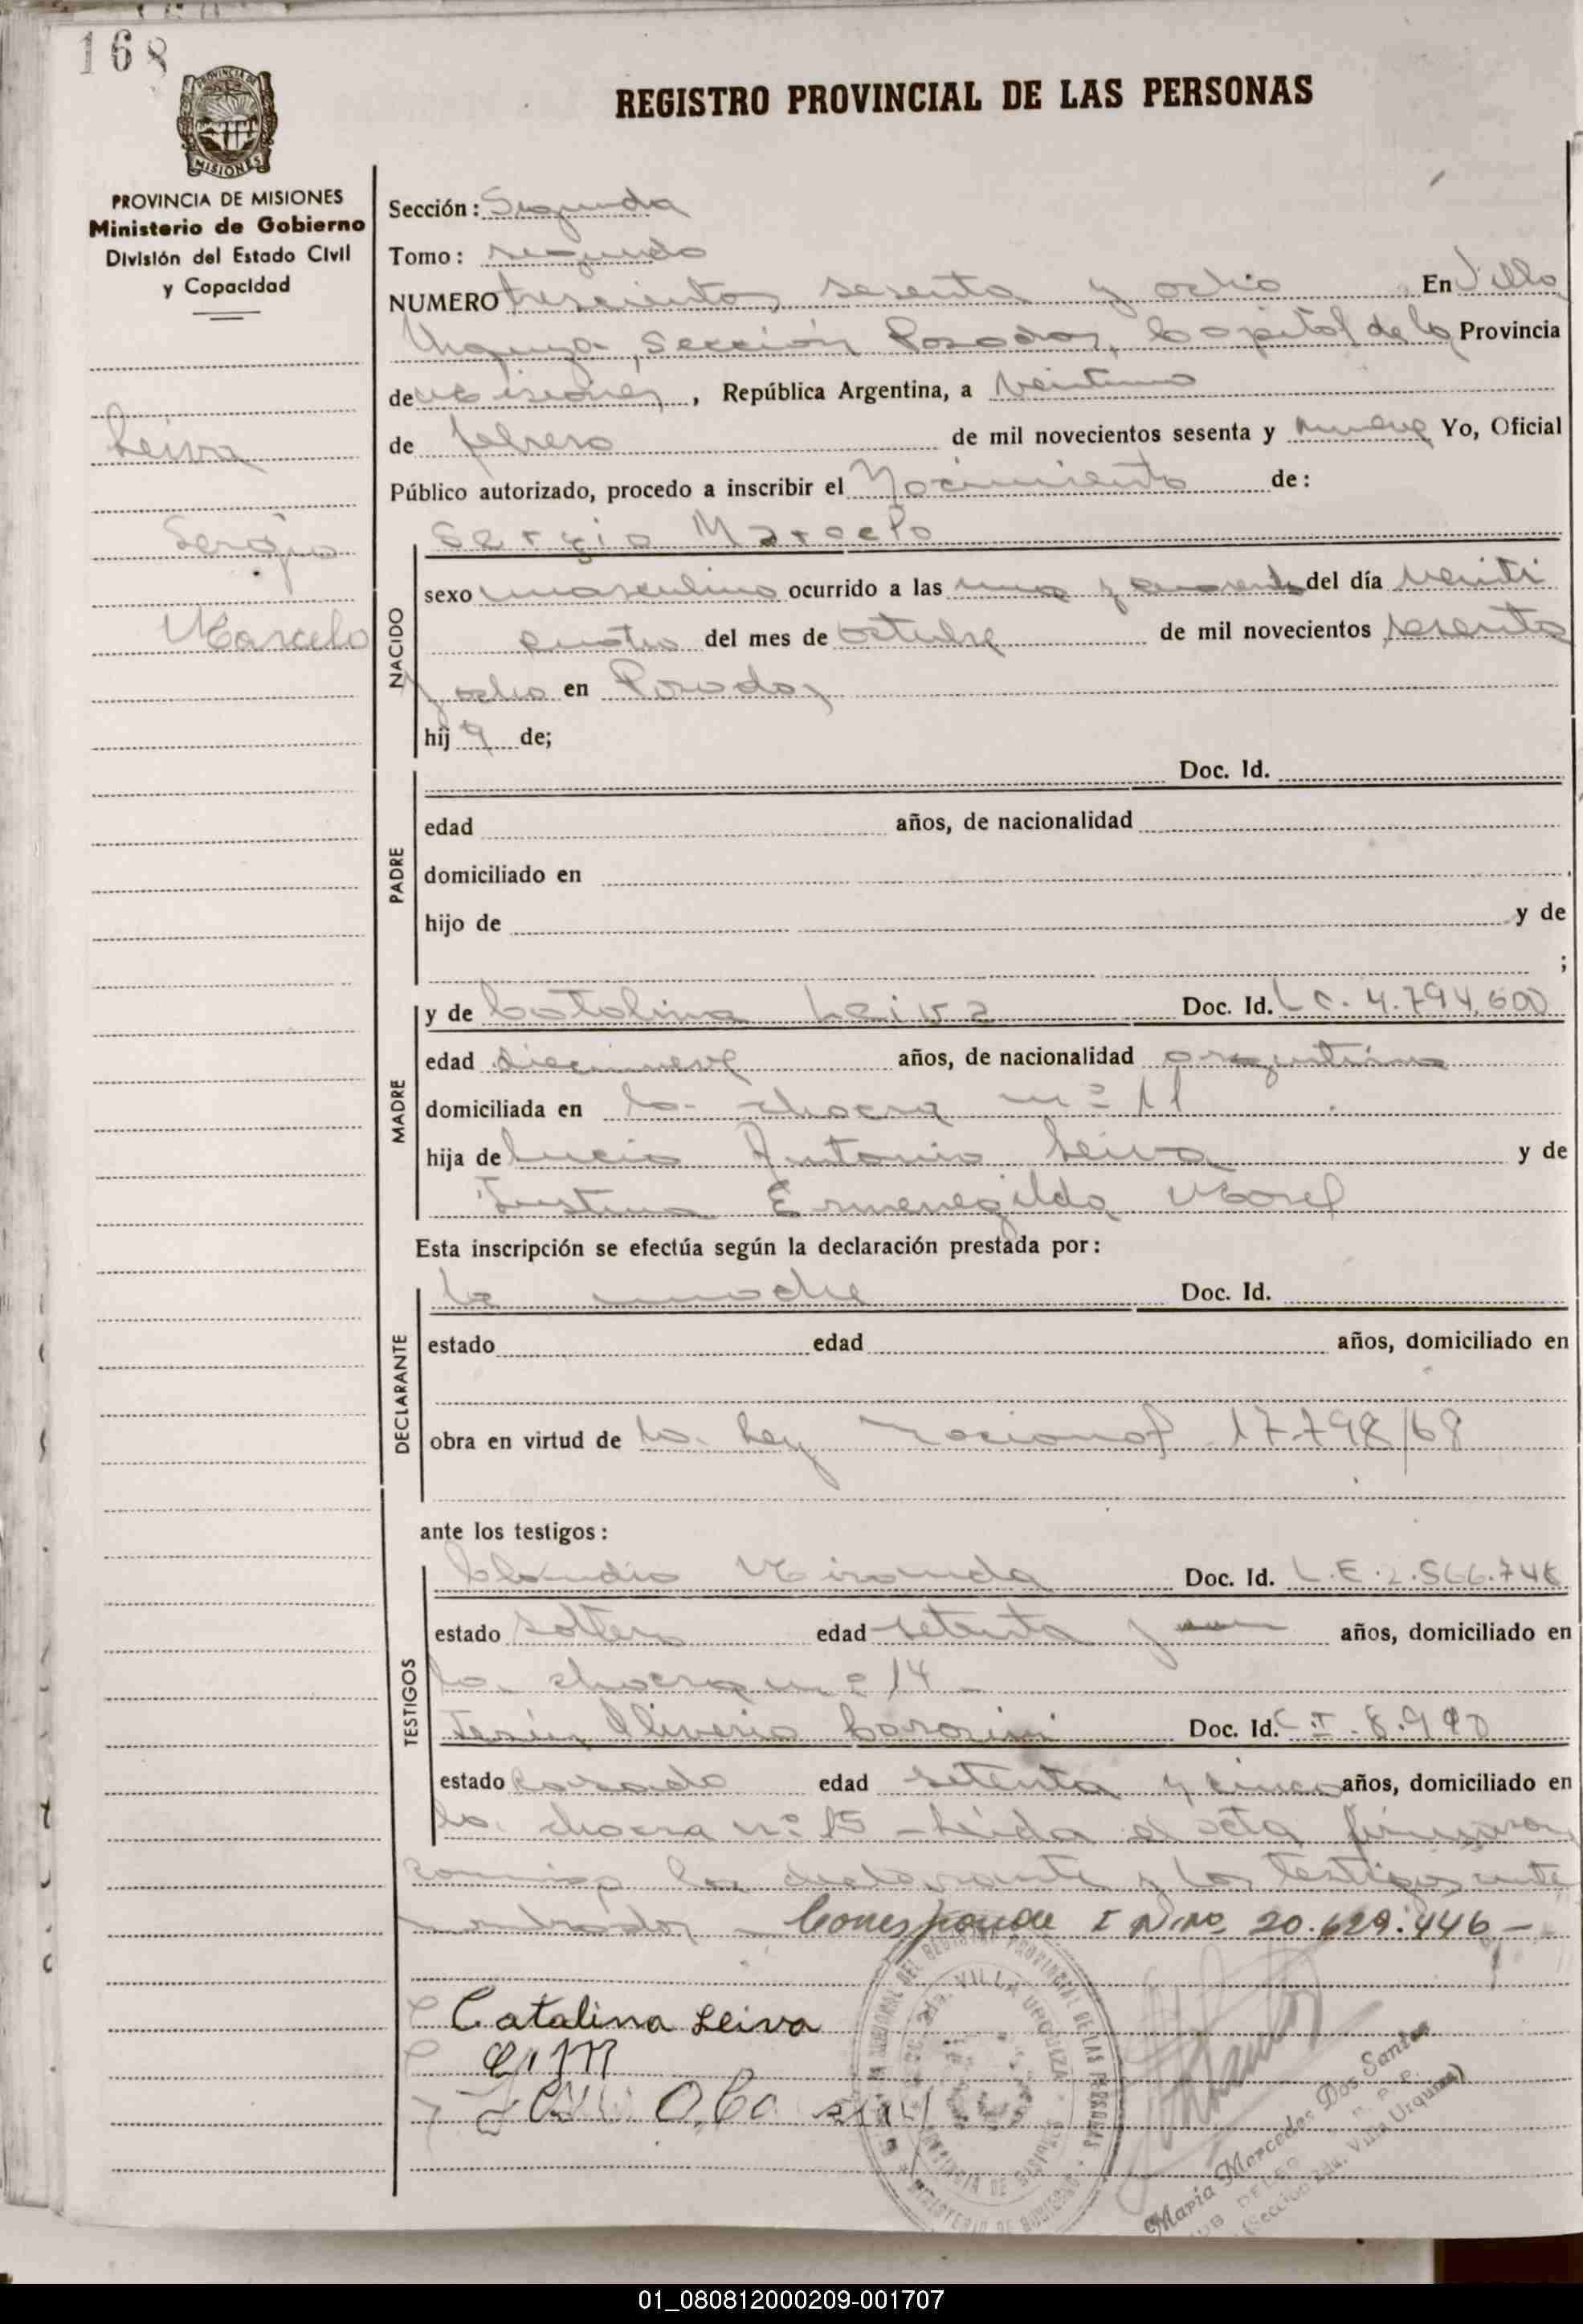 168
PROVINCIA DE MISIONES
MISIONES
PROVINCIA DE MISIONES
Ministerio de Gobierno
División del Estado Civil
y Capacidad
Leiva
Sergio
Marcelo
REGISTRO PROVINCIAL DE LAS PERSONAS
Sección: Segunda
Tomo: segundo
NUMERO trescientos sesenta y ocho En Villa
Urquiza, Sección Posadas, Capital de la Provincia
de Misiones, República Argentina, a veintiuno
de febrero de mil novecientos sesenta y nueve Yo, Oficial
Público autorizado, procedo a inscribir el Nacimiento de:
NACIDO
Sergio Marcelo
sexo masculino ocurrido a las una y cuarenta del día veinti
cuatro del mes de octubre de mil novecientos sesenta
y ocho en Posadas
hij de;
PADRE
Doc. Id.
edad años, de nacionalidad
domiciliado en
hijo de y de
;
MADRE
y de Catalina Leiva Doc. Id. L C. 4.794.600
edad diecinueve años, de nacionalidad argentina
domiciliada en la chacra nº 11
hija de Lucio Antonio Leiva y de
Justina Ermenegilda Morel
Esta inscripción se efectúa según la declaración prestada por:
DECLARANTE
la madre Doc. Id.
estado edad años, domiciliado en
obra en virtud de la Ley Nacional 17798/68
ante los testigos:
TESTIGOS
Claudio Miranda Doc. Id. L.E. 2.566.746
estado soltero edad setenta y años, domiciliado en
la chacra nº 14
Jesús Oliverio Doc. Id. C.I. 8.990
estado casado edad setenta y cinco años, domiciliado en
la chacra nº 15 - Leída el acta firmaron
conmigo la declarante y los testigos ante
nombrados - Corresponde I Nro 20.629.446 -
Catalina Leiva
C. M
REGISTRO PROVINCIAL DE LAS PERSONAS
2da. VILLA URQUIZA
PROVINCIA DE MISIONES
MINISTERIO DE GOBIERNO
María Mercedes Dos Santos
(Sección 2da. Villa Urquiza)
01_080812000209-001707